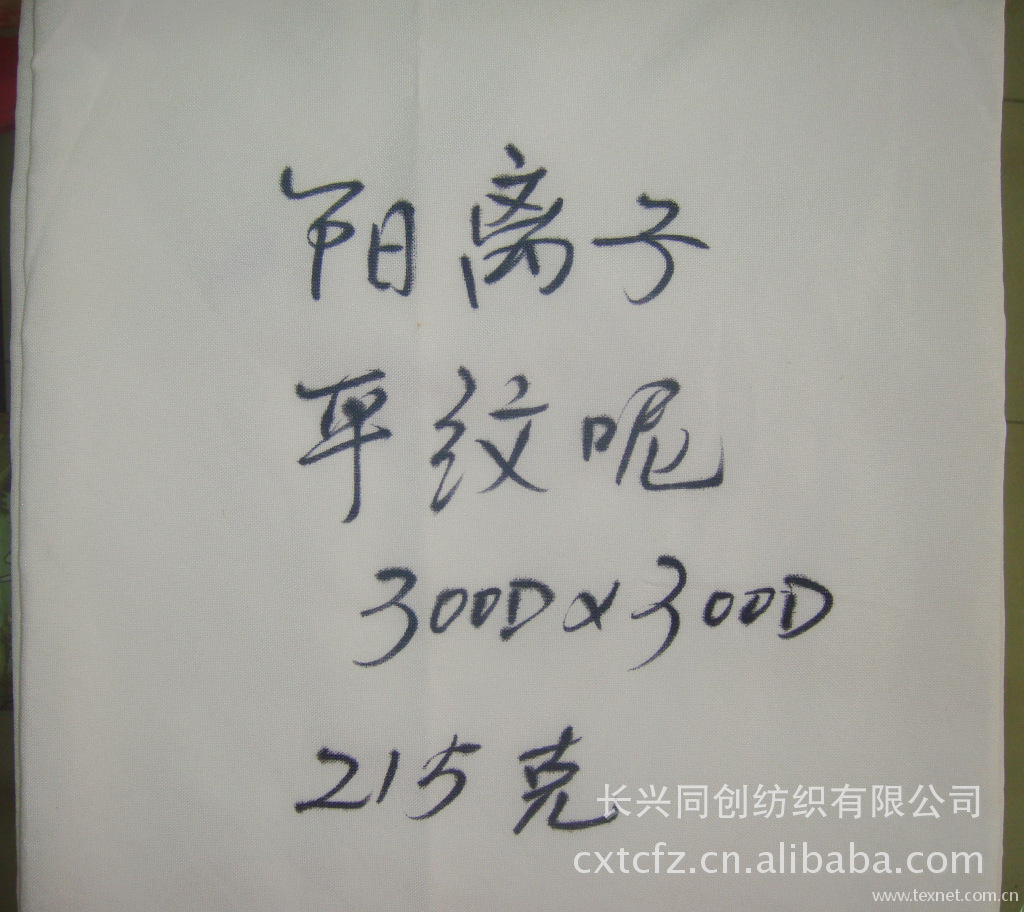 阳离子
平纹呢
300D×300D
215克
长兴同创纺织有限公司
cxtcfz.cn.alibaba.com
www.texnet.com.cn